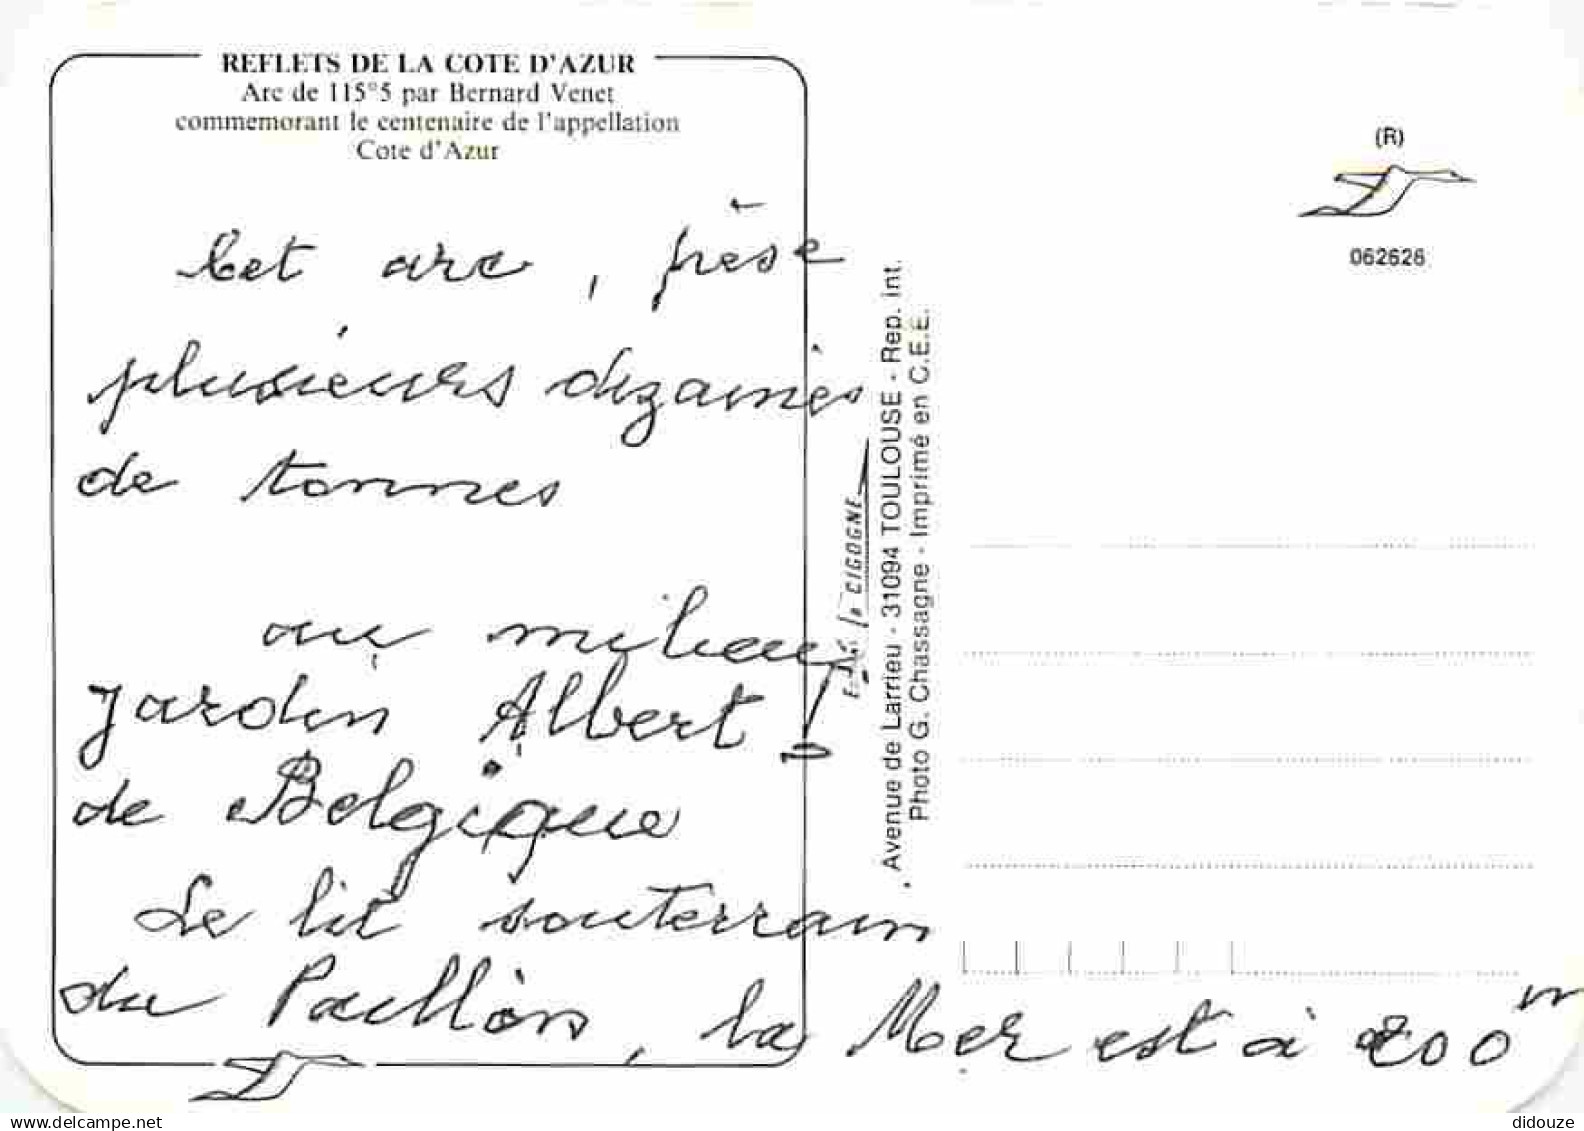 REFLETS DE LA COTE D'AZUR
Arc de 115°5 par Bernard Venet
commemorant le centenaire de l'appellation
Cote d'Azur
Cet arc, pèse
plusieurs dizaines
de tonnes
au milieu
Jardin Albert I
de Belgique
Le lit souterrain
du Paillon, la Mer est à 200 m
(R)
062626
la CIGOGNE
Avenue de Larrieu - 31094 TOULOUSE - Rep. int.
Photo G. Chassagne - Imprimé en C.E.E.
www.delcampe.net
didouze